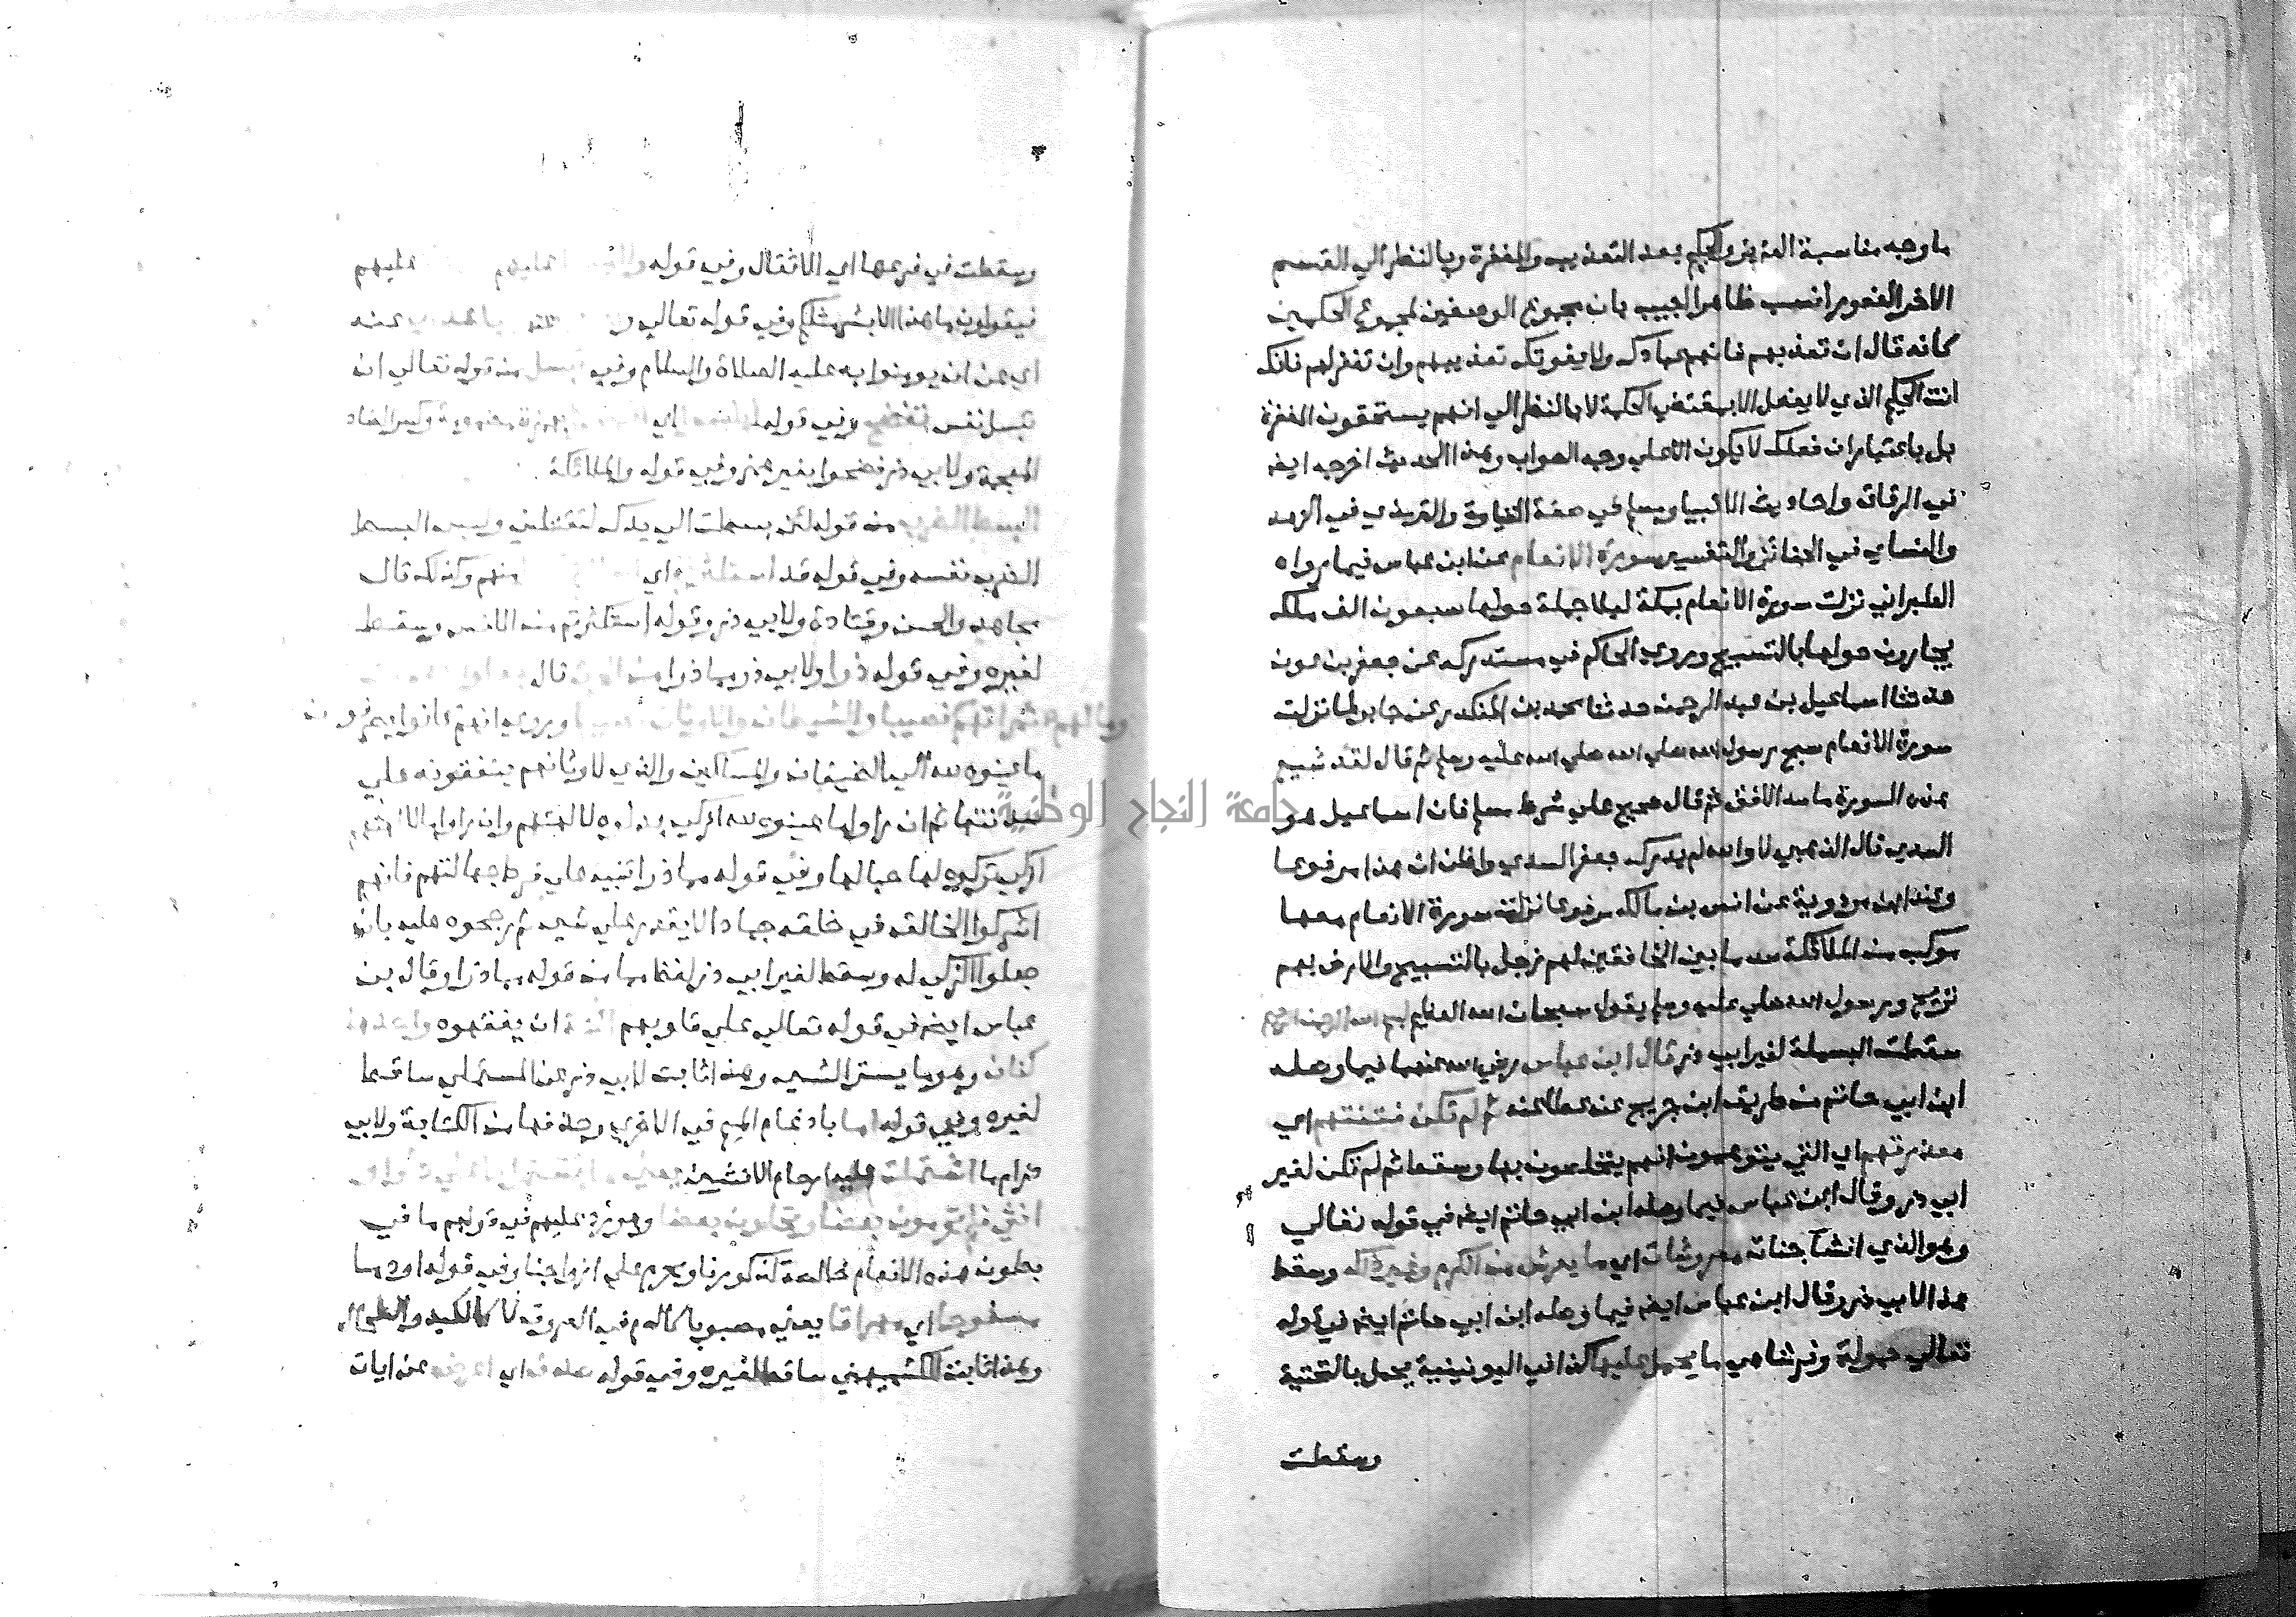 ما وجه مناسبة العزيز الحكيم بعد التعذيب والمغفرة وبالنظر الي القسم
الاخر الغفور انسب ظاهرا اجيب بان مجموع الوصفين لمجموع الحكمين
كانه قال ان تعذبهم فانهم عبادك ولا يفوتك تعذيبهم وان تغفر لهم فانك
انت الحكيم الذي لا يفعل الا بمقتضي الحكمة لا بالنظر الي انهم يستحقون المغفرة
بل باعتبار ان فعلك لا يكون الا علي وجه الصواب وهذا الحديث اخرجه ايضا
في الرقاق واحاديث الانبيا ومسلم في صفة القيامة والترمذي في الزهد
والنساي في الجنائز والتفسير سورة الانعام عن ابن عباس فيما رواه
الطبراني نزلت سورة الانعام بمكة ليلا جملة حولها سبعون الف ملك
يجارون حولها بالتسبيح وروي الحاكم في مستدركه عن جعفر بن عون
حدثنا اسماعيل بن عبد الرحمن حدثنا محمد بن المنكدر عن جابر لما نزلت
سورة الانعام سبح رسول الله صلي الله عليه وسلم ثم قال لقد شيع
هذه السورة ما سد الافق ثم قال صحيح علي شرط مسلم فان اسماعيل هو
السدي قال الذهبي لا والله لم يدرك جعفر السدي واظن ان هذا مرفوعا
وعند ابن مردوية عن انس بن مالك مرفوعا نزلت سورة الانعام معها
موكب من الملائكة سد ما بين الخافقين لهم زجل بالتسبيح والارض بهم
ترتج ورسول الله صلي عليه وسلم يقول سبحان الله العظيم بسم الله الرحمن الرحيم
سقطت البسملة لغير ابي ذر قال ابن عباس رضي الله عنهما فيما وصله
ابن ابي حاتم من طريق ابن جريج عن عطا عنه ثم لم تكن فتنتهم اي
معذرتهم اي التي يتوهمون انهم يتخلصون بها وسقط ثم لم تكن لغير
ابي ذر وقال ابن عباس فيما وصله ابن ابي حاتم ايضا في قوله تعالي
وهو الذي انشا جنات معروشات اي ما يعرش من الكرم وغير ذلك وسقط
هذا لابي ذر وقال ابن عباس ايضا فيما وصله ابن ابي حاتم ايضا في قوله
تعالي حمولة وفرشا هي ما يحمل عليها كذا في اليونينية يحمل بالتحتية
وسقطت
وسقطت في فرعها اي الاثقال وفي قوله عليهم
فيقولون ما هذا الا بشر مثلكم وفي قوله تعالي عنه
اي عن ان يومنوا به عليه الصلاة والسلام وفي تبسل من قوله تعالي ان
تبسل نفس تفضح وفي قوله
المعجمة ولابي ذر فضحوا بغير همز وفي قوله والملائكة
البسط الضرب من قوله لئن بسطت الي يدك لتقتلني وليس البسط
الضرب نفسه وفي قوله قد استكثرتم اي منهم وكذلك قال
مجاهد والحسن وقتادة ولابي ذر وقوله استكثرتم من الانس وسقط
لغيره وفي قوله ذرا ولابي ذر مما ذرا من قال
نصيبا وللشيطان والاوثان نصيبا وروي انهم كانوا يصرفون
ما عينوه لله الي الضيفان والمساكين والذي لاوثانهم ينفقونه علي
سدنتها ثم ان راوا ما عينوه لله ازكي بدلوه لالهتهم وان راوا ما لالهتهم
ازكي تركوه لها حبا لها وفي قوله مما ذرا تنبيه علي فرط جهالتهم فانهم
اشركوا الخالق في خلقه جمادا لا يقدر علي شي ثم رجحوه عليه بان
جعلوا الزاكي له وسقط لغير ابي ذر لفظ مما من قوله مما ذرا وقال بن
عباس ايضا في قوله تعالي علي قلوبهم اكنة ان يفقهوه
كنان وهو ما يستر الشي وهذا ثابت لابي ذر عن المستملي ساقط
لغيره وفي قوله اما بادغام الميم في الاخري وحذفها من الكتابة ولابي
ذر ام ما اشتملت عليه ارحام الانثيين
انثي فلم تحرمون بعضا وتحلون بعضا وهو رد عليهم في قولهم ما في
بطون هذه الانعام خالصة لذكورنا ومحرم علي ازواجنا وفي قوله او دما
مسفوحا اي مهراقا يعني مصبوبا كالدم في العروق لا كالكبد والطحال
وهذا ثابت للكشميهني ساقط لغيره وفي قوله صدف اي اعرض عن ايات
جامعة النجاح الوطنية